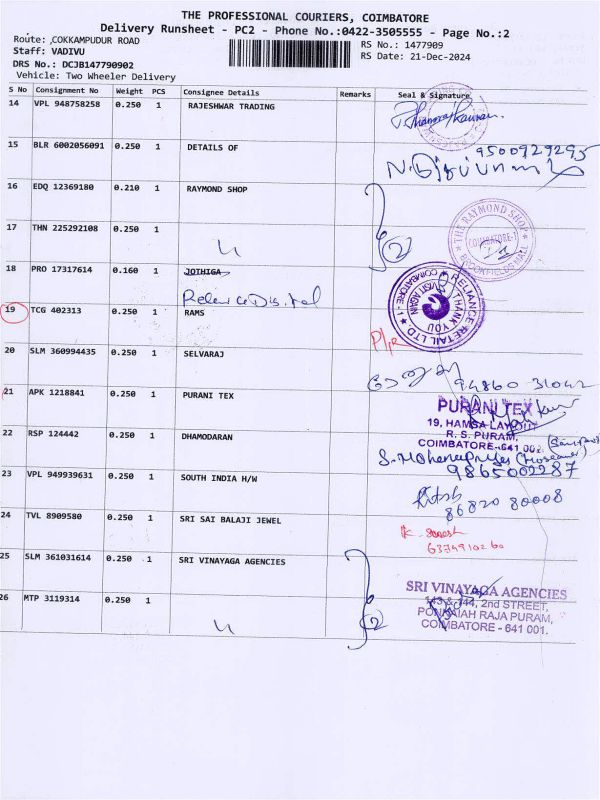 THE PROFESSIONAL COURIERS, COIMBATORE
Delivery Runsheet - PC2 - Phone No.:0422-3505555 - Page No.:2
Route: ,COKKAMPUDUR ROAD
RS No.: 1477909
Staff: VADIVU
RS Date: 21-Dec-2024
DRS No.: DCJB147790902
Vehicle: Two Wheeler Delivery
S No Consignment No Weight PCS Consignee Details Remarks Seal & Signature
14 VPL 948758258 0.250 1 RAJESHWAR TRADING
15 BLR 6002056091 0.250 1 DETAILS OF 9500929295
16 EDQ 12369180 0.210 1 RAYMOND SHOP
THE RAYMOND SHOP
COIMBATORE-
BROOKFIELDS MALL
17 THN 225292108 0.250 1
2
18 PRO 17317614 0.160 1 JOTHIGA
Reliance Digital
RELIANCE RETAIL LTD
COIMBATORE-1
THANK YOU
VISIT AGAIN
19 TCG 402313 0.250 1 RAMS
20 SLM 360994435 0.250 1 SELVARAJ
94860 31042
21 APK 1218841 0.250 1 PURANI TEX
PURANI TEX
19, HAMSA LAYOUT
R. S. PURAM,
COIMBATORE-641 002.
22 RSP 124442 0.250 1 DHAMODARAN
9865002287
23 VPL 949939631 0.250 1 SOUTH INDIA H/W
86820 80008
24 TVL 8909580 0.250 1 SRI SAI BALAJI JEWEL
25 SLM 361031614 0.250 1 SRI VINAYAGA AGENCIES
SRI VINAYAGA AGENCIES
2nd STREET,
PONNAIAH RAJA PURAM,
COIMBATORE - 641 001.
26 MTP 3119314 0.250 1
2